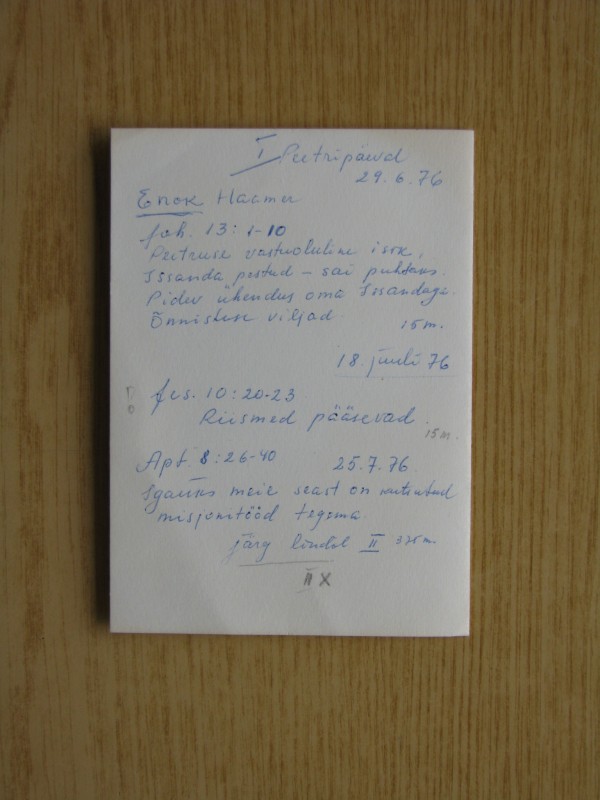 I Peetripäevad
29.6.76
Enok Haamer
Joh. 13:1-10
Peetruse vastuoluline isik,
Issanda pestud – sai puhtaks.
Pidev ühendus oma Issandaga.
Õnnistuse viljad 15 m.
18. juuli 76
Jes. 10:20-23
Riismed pääsevad 15 m.
Apt. 8:26-40 25.7.76
Igaüks meie seast on kutsutud
misjonitööd tegema.
järg lindil II
II X